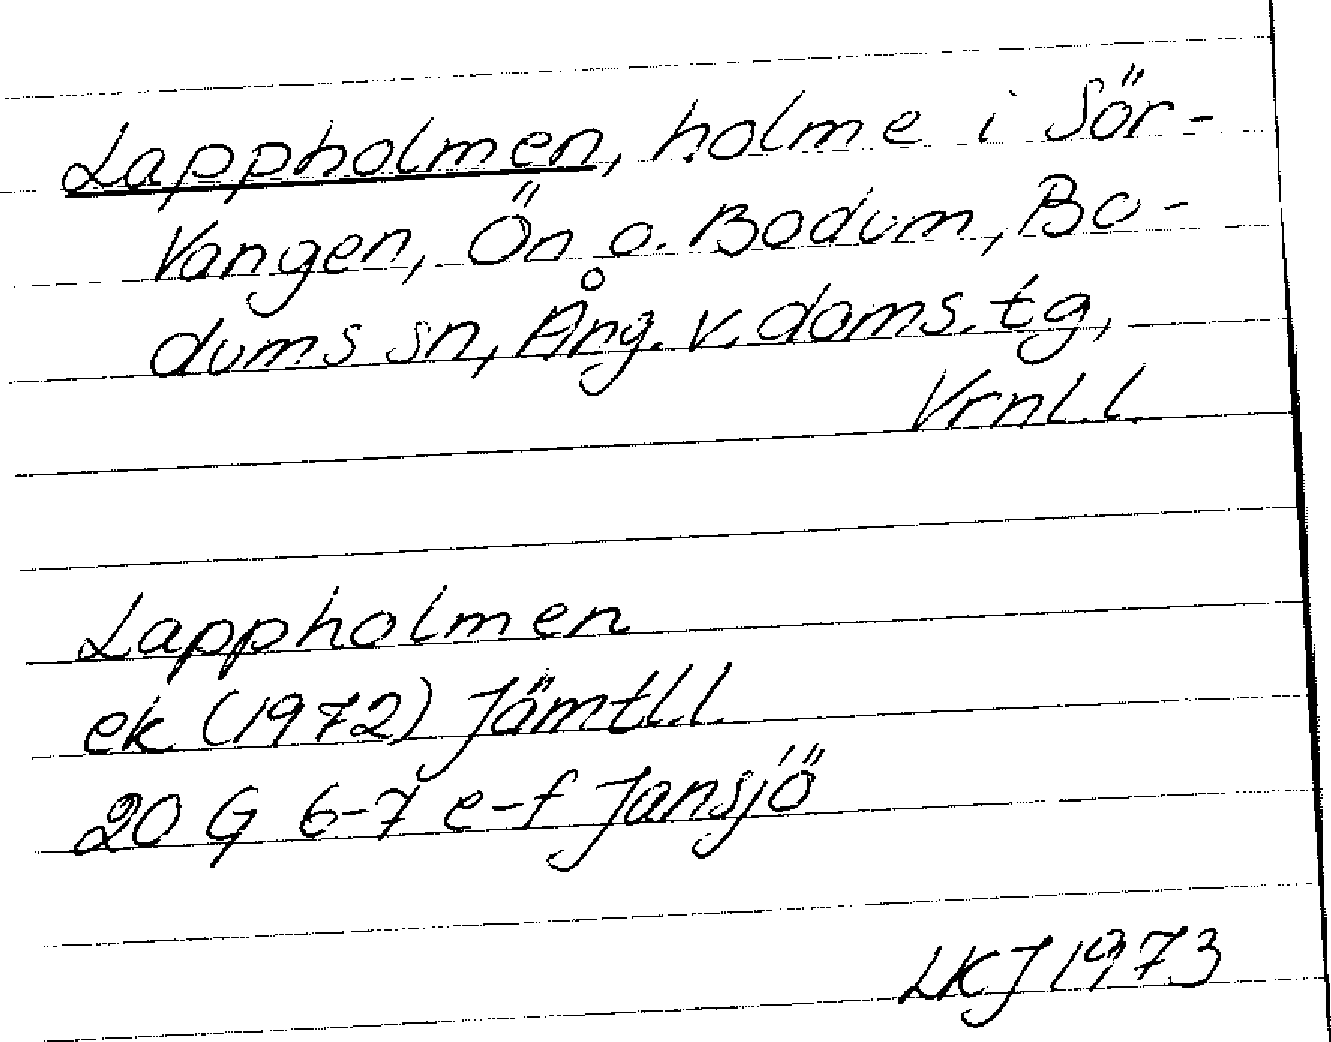 Lappholmen, holme i Sör-
Vangen, Ön o. Bodum, Bo-
dums sn, Ång. v. doms. tg,
Vrnl. l.
Lappholmen
ek (1972) Jämtl. l.
20 G 6-7 e-f Jansjö
LKJ 1973